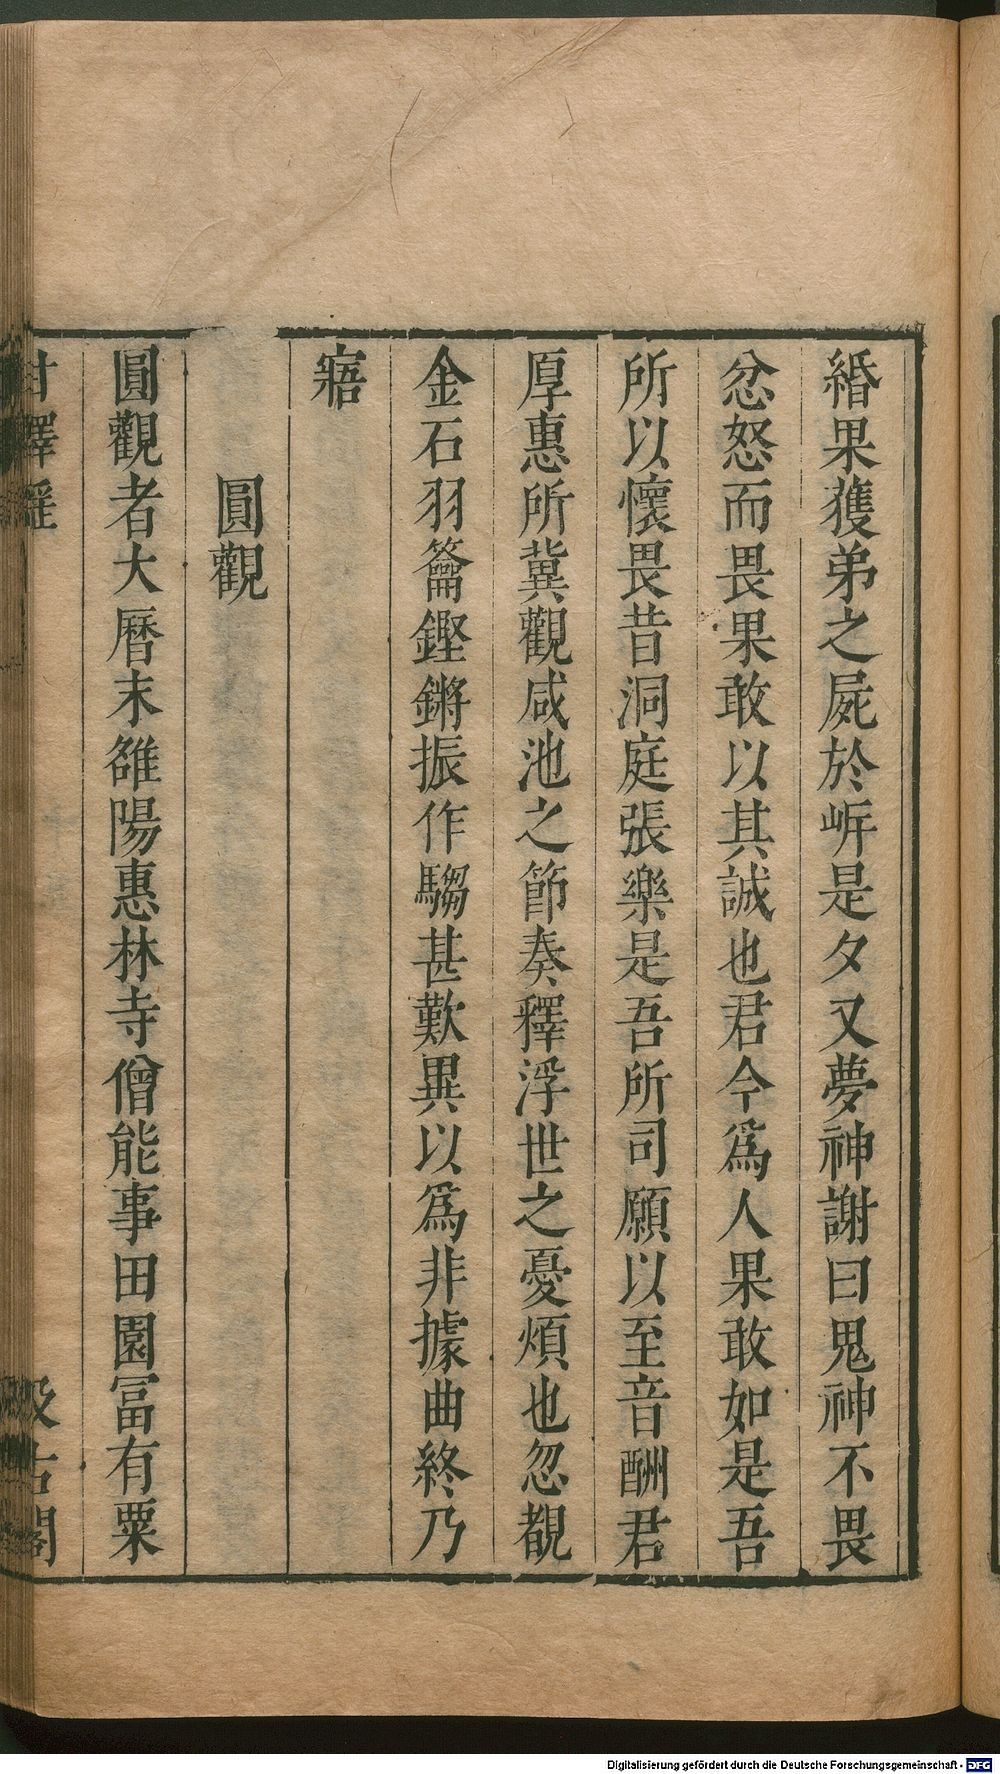 緡果獲弟之屍於岸是夕又夢神謝曰鬼神不畏
忿怒而畏果敢以其誠也君今爲人果敢如是吾
所以懷畏昔洞庭張樂是吾所司願以至音酬君
厚惠所冀觀咸池之節奏釋浮世之憂煩也忽覩
金石羽籥鏗鏘振作騶甚歎異以爲非據曲終乃
寤
圓觀
圓觀者大曆末雒陽惠林寺僧能事田園冨有粟
甘澤謠
汲古閣
Digitalisierung gefördert durch die Deutsche Forschungsgemeinschaft - DFG